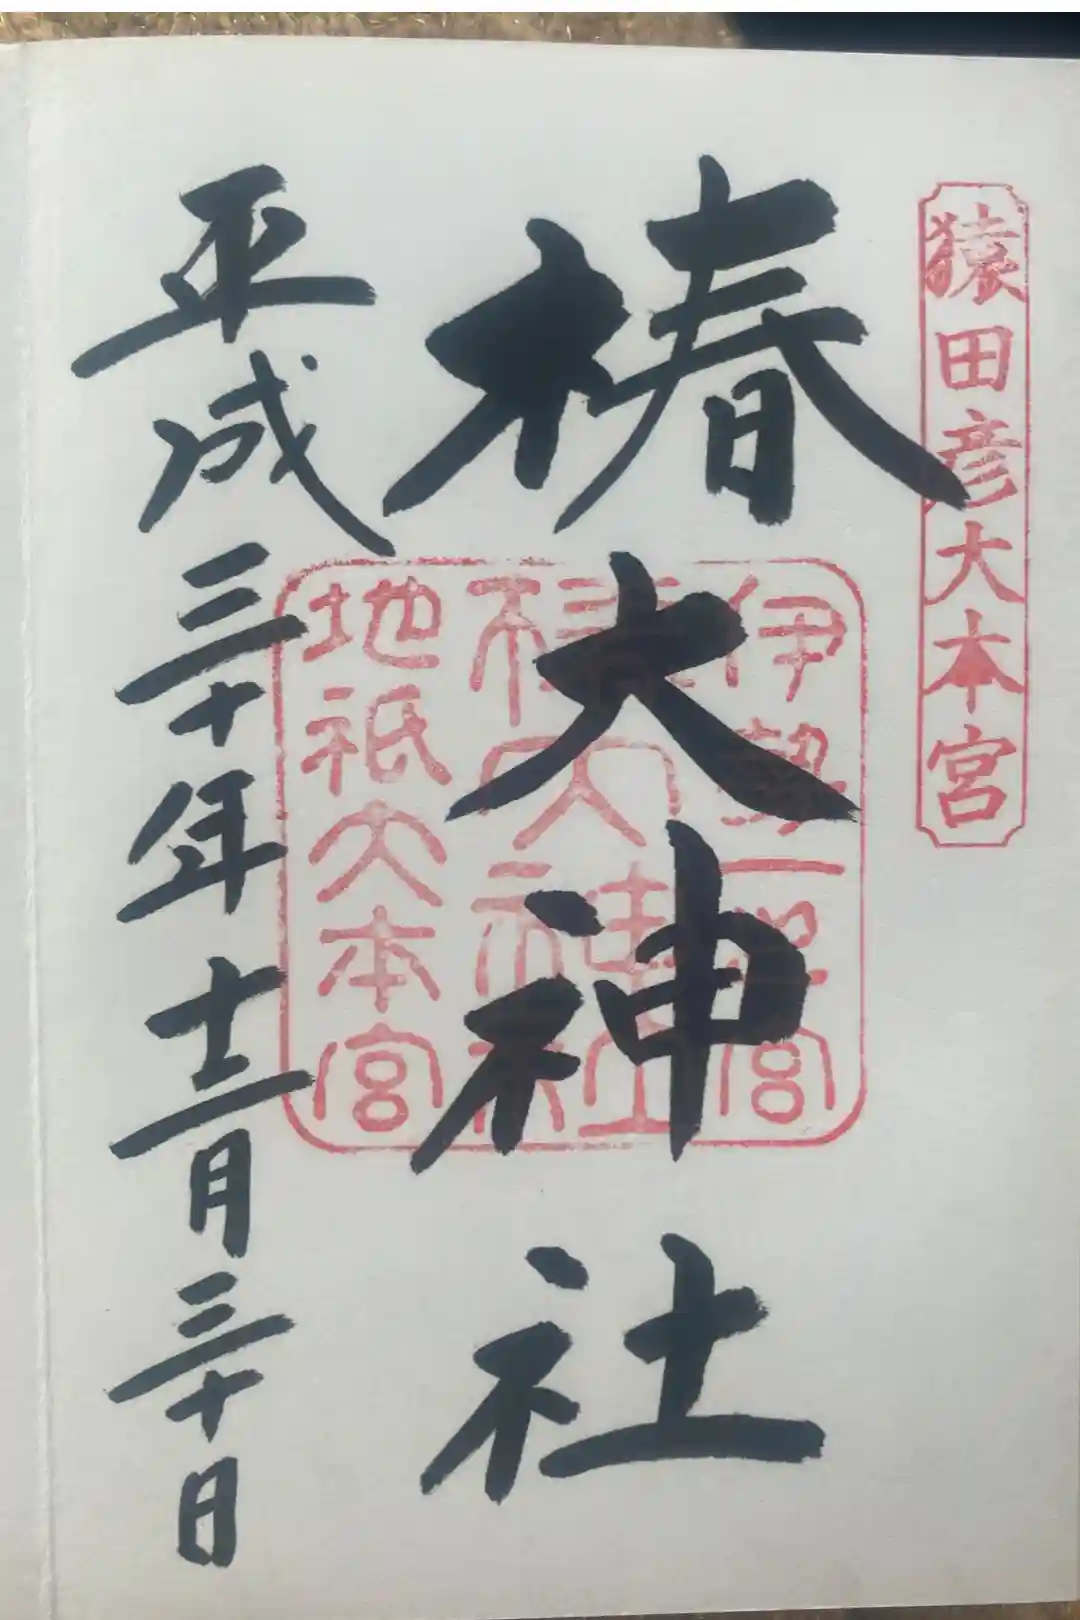 猿田彦大本宮
椿大神社
伊勢一宮
椿大神社
地祇大本宮
平成三十年十二月三十日